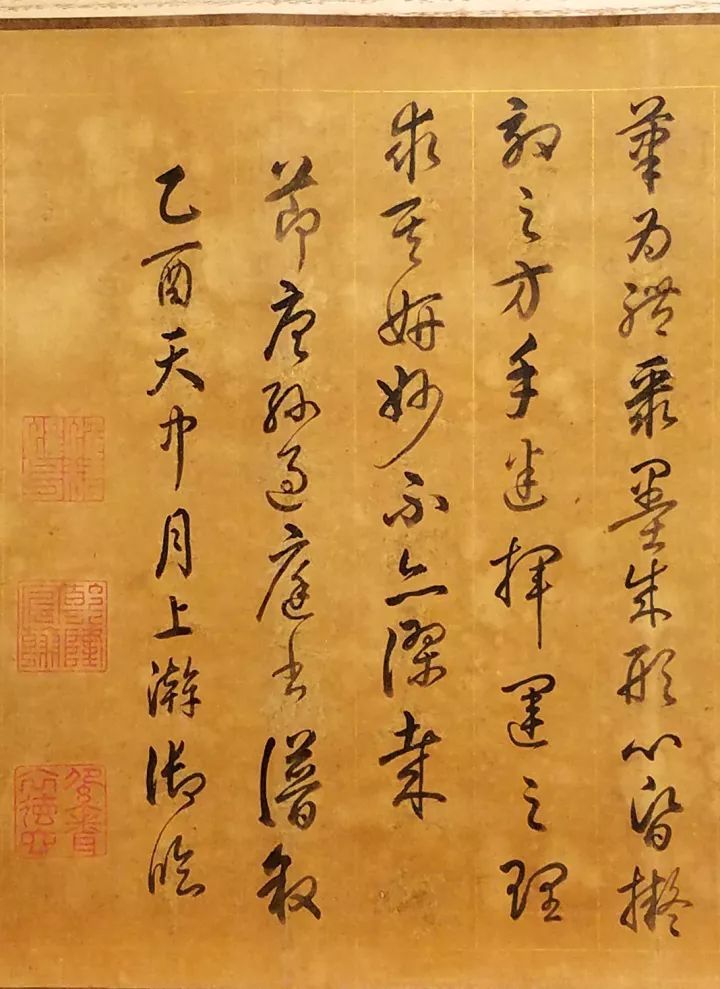 筆為體聚墨成形心昏擬
效之方手迷揮運之理
求其妍妙不亦謬哉
節唐孫過庭書譜敘
乙酉天中月上澣御臨
乾隆宸翰